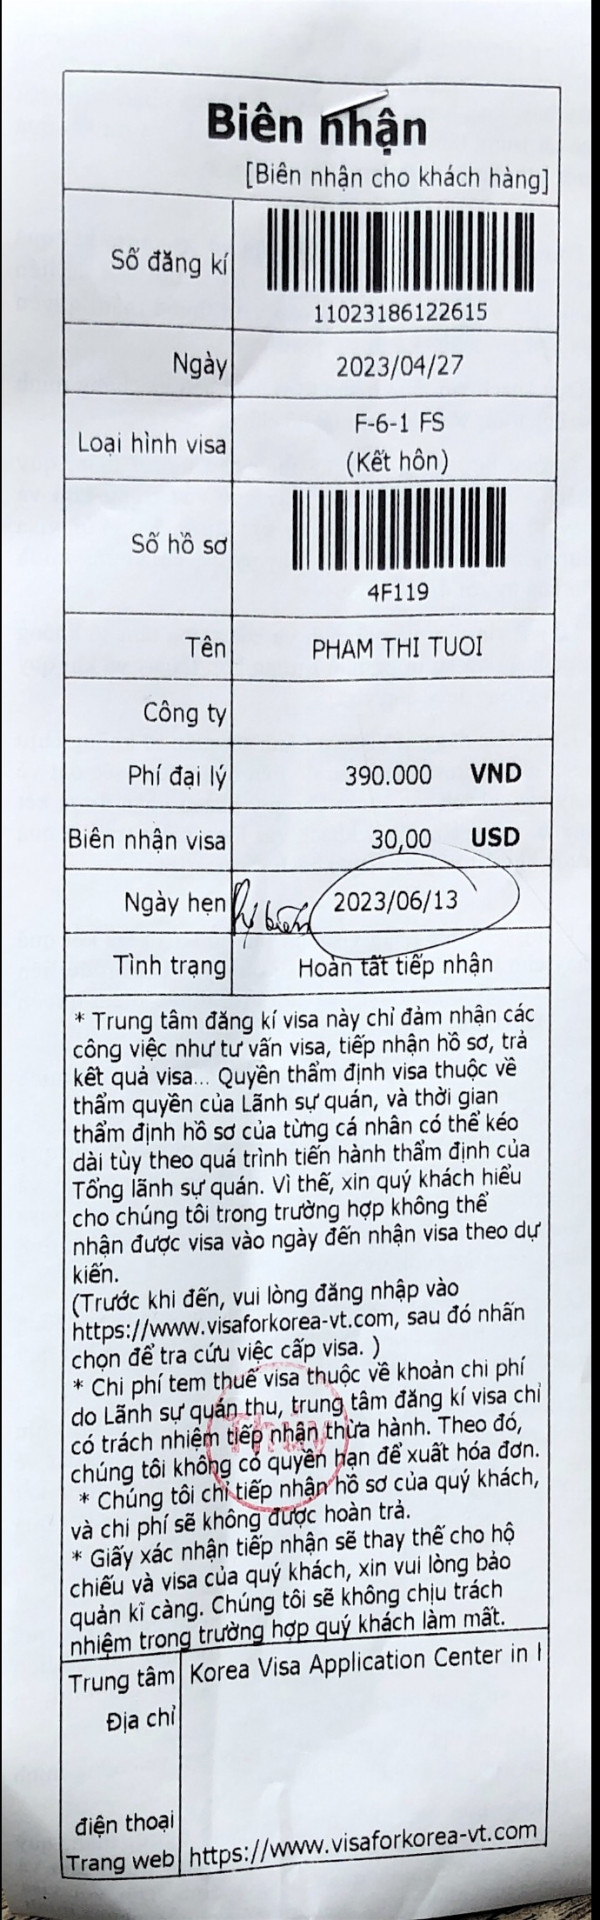 Biên nhận
[Biên nhận cho khách hàng]
Số đăng kí
11023186122615
Ngày 2023/04/27
Loại hình visa F-6-1 FS
(Kết hôn)
Số hồ sơ
4F119
Tên PHAM THI TUOI
Công ty
Phí đại lý 390.000 VND
Biên nhận visa 30,00 USD
Ngày hẹn 2023/06/13
Tình trạng Hoàn tất tiếp nhận
* Trung tâm đăng kí visa này chỉ đảm nhận các
công việc như tư vấn visa, tiếp nhận hồ sơ, trả
kết quả visa... Quyền thẩm định visa thuộc về
thẩm quyền của Lãnh sự quán, và thời gian
thẩm định hồ sơ của từng cá nhân có thể kéo
dài tùy theo quá trình tiến hành thẩm định của
Tổng lãnh sự quán. Vì thế, xin quý khách hiểu
cho chúng tôi trong trường hợp không thể
nhận được visa vào ngày đến nhận visa theo dự
kiến.
(Trước khi đến, vui lòng đăng nhập vào
https://www.visaforkorea-vt.com, sau đó nhấn
chọn để tra cứu việc cấp visa. )
* Chi phí tem thuế visa thuộc về khoản chi phí
do Lãnh sự quán thu, trung tâm đăng kí visa chỉ
có trách nhiệm tiếp nhận thừa hành. Theo đó,
chúng tôi không có quyền hạn để xuất hóa đơn.
* Chúng tôi chỉ tiếp nhận hồ sơ của quý khách,
và chi phí sẽ không được hoàn trả.
* Giấy xác nhận tiếp nhận sẽ thay thế cho hộ
chiếu và visa của quý khách, xin vui lòng bảo
quản kĩ càng. Chúng tôi sẽ không chịu trách
nhiệm trong trường hợp quý khách làm mất.
Trung tâm Korea Visa Application Center in
Địa chỉ
điện thoại
Trang web https://www.visaforkorea-vt.com
Thuý